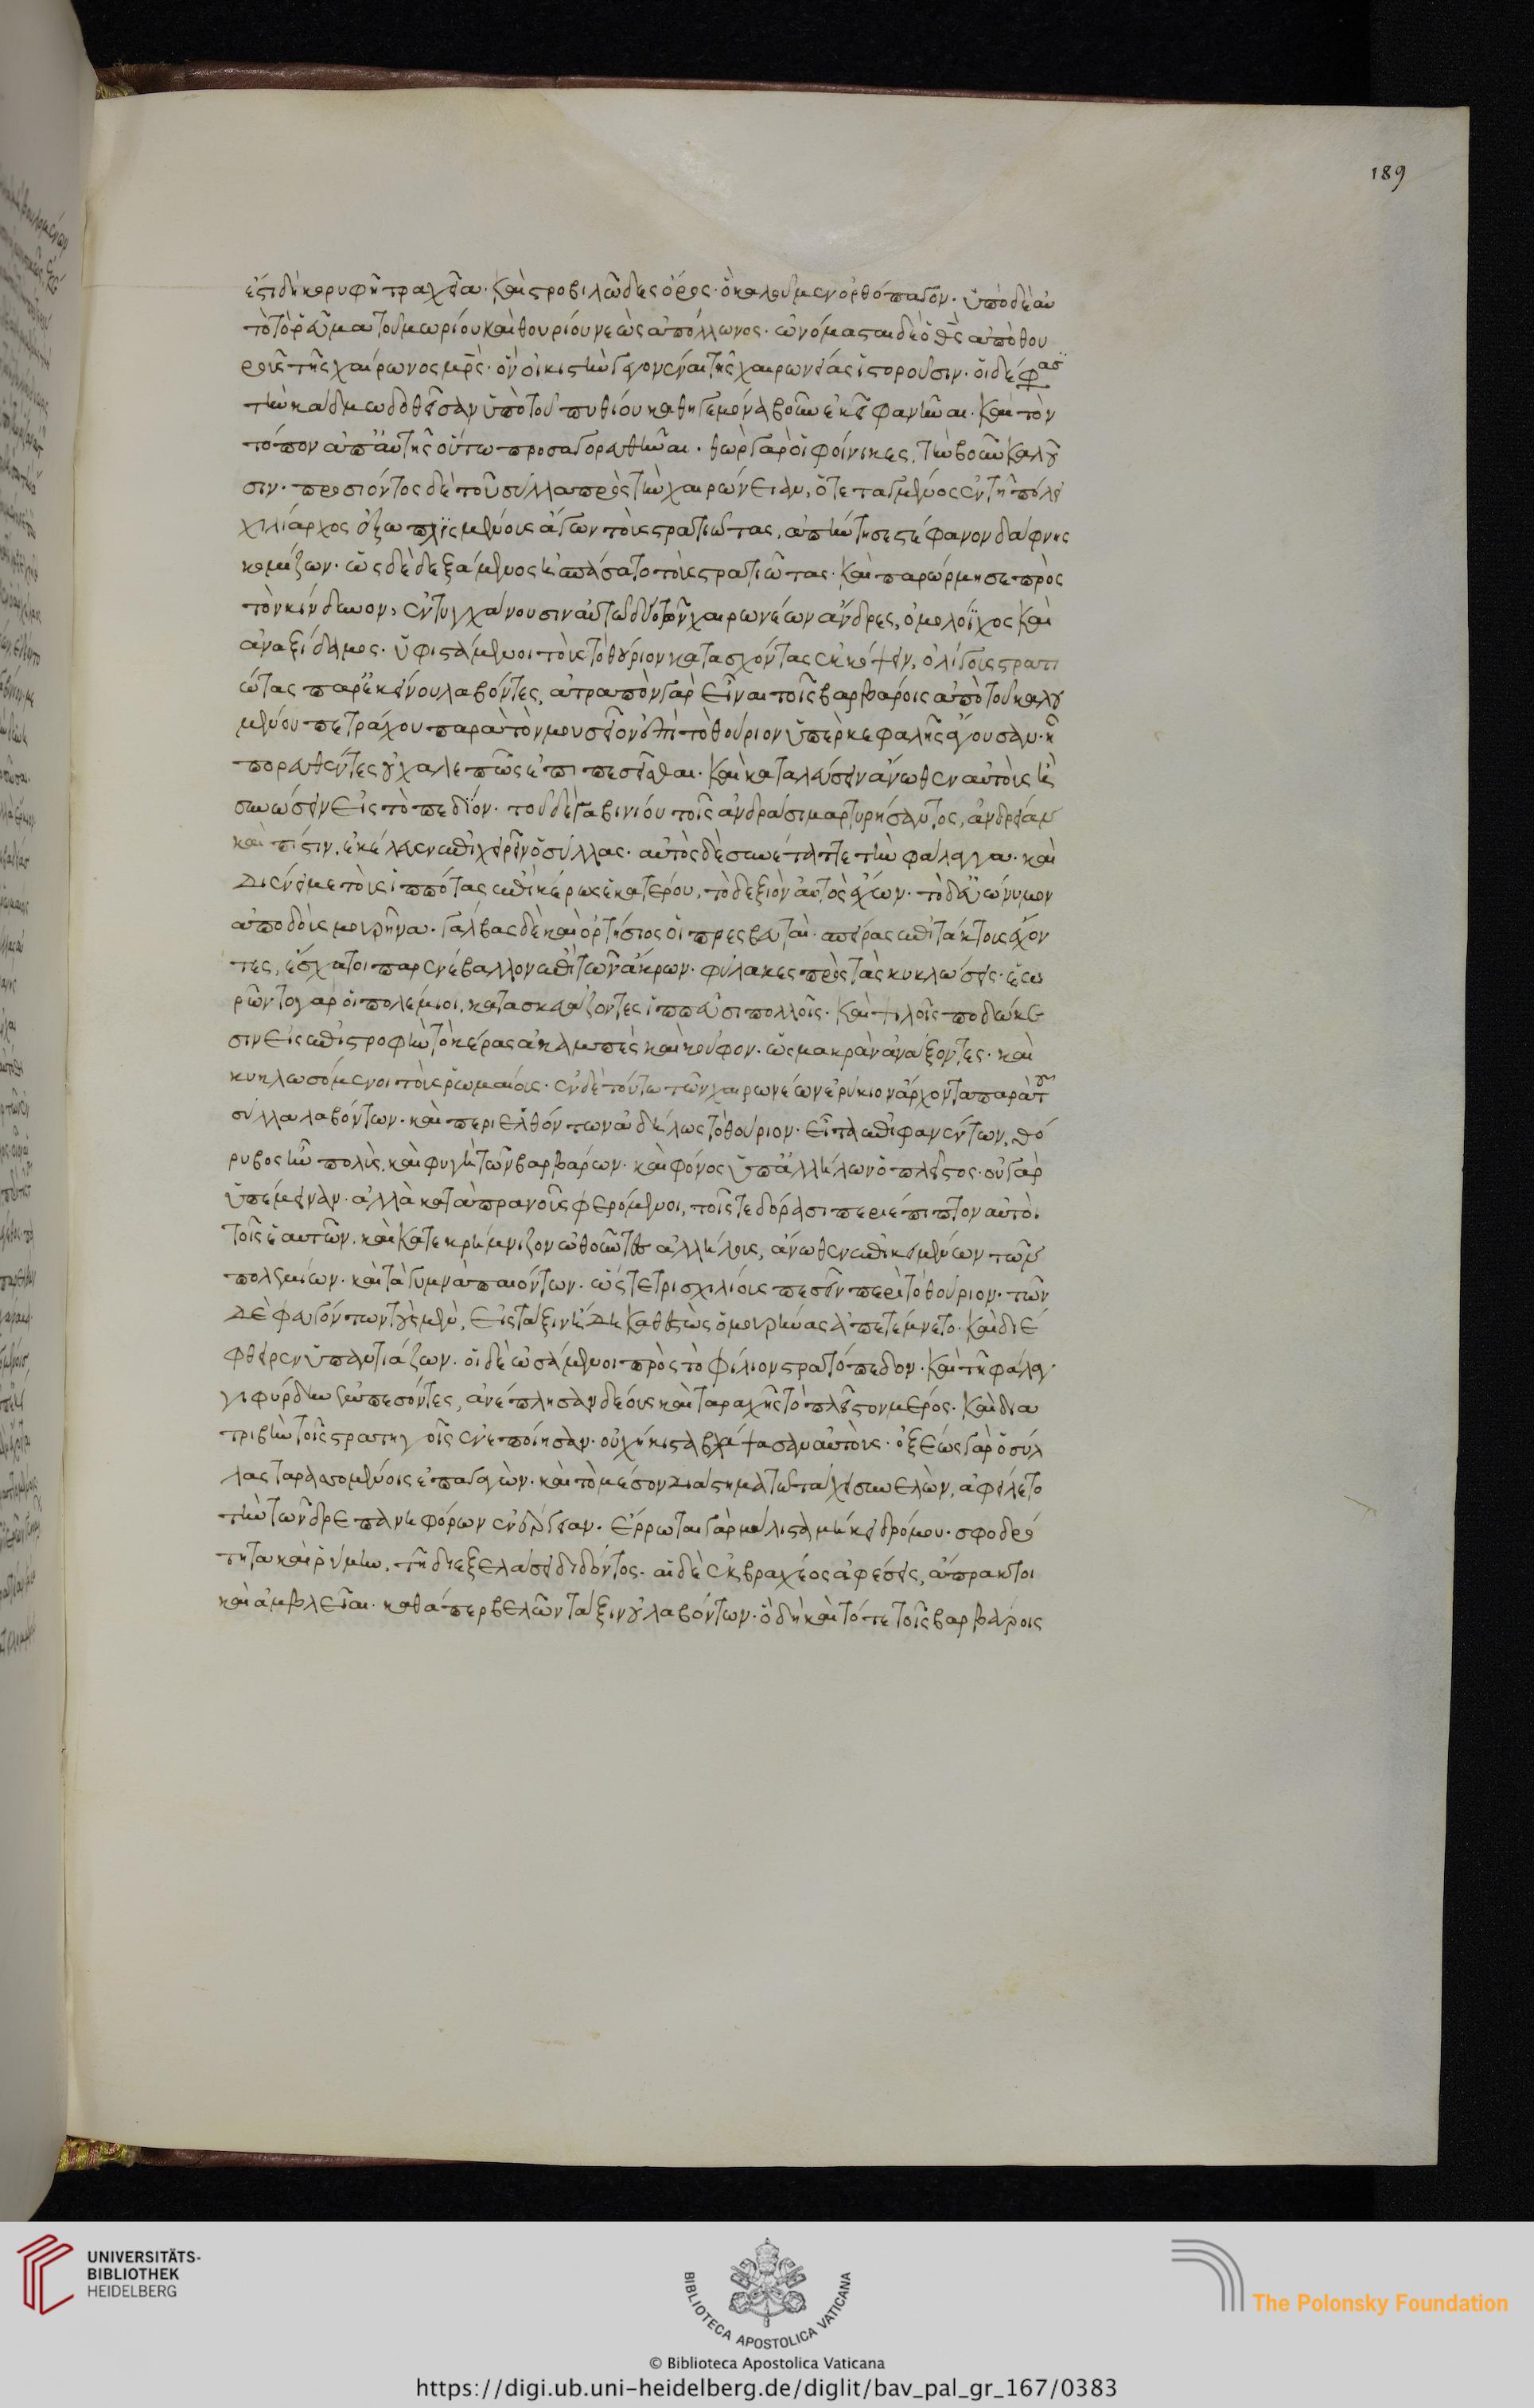 189
ἐστι δὲ κορυφὴ τραχεῖα. καὶ στροβιλῶδες ὄρος. ὃ καλοῦμεν ὀρθόπαγον. ὑπὸ δὲ αυ
τὸ τὸ ῥεῦμα τοῦ μωρίου καὶ θουρίου νεὼς ἀπόλλωνος. ὠνόμασται δὲ ὁ θεὸς ἀπὸ θου
ροῦς τῆς χαίρωνος μητρὸς. ὃν οἰκιστὴν γεγονέναι τῆς χαιρωνείας ἱστοροῦσιν. οἱ δέ φασι
τὴν κάδμω δοθεῖσαν ὑπὸ τοῦ πυθίου καθηγεμόνα βοῦν ἐκεῖ φανῆναι. καὶ τὸν
τόπον ἀπ' αὐτῆς οὕτω προσαγορευθῆναι. θὼρ γὰρ οἱ φοίνικες, τὴν βοῦν καλοῦ
σιν. προσιόντος δὲ τοῦ σύλλα πρὸς τὴν χαιρώνειαν, ὁ τεταγμένος ἐν τῆ πόλει
χιλίαρχος ἐξωπλισμένους ἄγων τοὺς στρατιώτας, ἀπήντησε στέφανον δάφνης
κομίζων. ὡς δὲ δεξάμενος ἠσπάσατο τοὺς στρατιώτας. καὶ παρώρμησε πρὸς
τὸν κίνδυνον, ἐντυγχάνουσιν αὐτῶ δύο τῶν χαιρωνέων ἄνδρες, ὁμολόϊχος καὶ
ἀναξίδαμος. ὑφιστάμενοι τοὺς τὸ θούριον κατασχόντας ἐκκόψειν, ὀλίγους στρατι
ώτας παρ' ἐκείνου λαβόντες, ἀτραπὸν γὰρ εἶναι τοῖς βαρβάροις ἀπὸ τοῦ καλου
μένου πετράχου παρὰ τὸν μουσεῖον ἐπὶ τὸ θούριον ὑπὲρ κεφαλῆς ἄγουσαν. ἧ
πορευθέντες οὐ χαλεπῶς ἐπιπεσεῖσθαι. καὶ καταλεύσειν ἄνωθεν αὐτοὺς ἢ
συνώσειν εἰς τὸ πεδίον. τοῦ δὲ γαβινίου τοῖς ἀνδράσι μαρτυρήσαντος, ἀνδρείαν
καὶ πίστιν, ἐκέλευσεν ἐπιχειρεῖν ὁ σύλλας. αὐτὸς δὲ συνέταττε τὴν φάλαγγα. καὶ
διένειμε τοὺς ἱππότας ἐπὶ κέρως ἑκατέρου, τὸ δεξιὸν αὐτὸς ἔχων. τὸ δ' εὐώνυμον
ἀποδοὺς μουρῆνα. γάλβας δὲ καὶ ὁρτήσιος οἱ πρεσβευταὶ. σπείρας ἐπιτάκτους ἔχον
τες, ἔσχατοι παρενέβαλλον ἐπὶ τῶν ἄκρων. φύλακες πρὸς τὰς κυκλώσεις. ἑω
ρῶντο γὰρ οἱ πολέμιοι. κατασκευάζοντες ἱππεῦσι πολλοῖς. καὶ ψιλοῖς ποδώκε
σιν εἰς ἐπιστροφὴν τὸ κέρας εὐκαμπὲς καὶ κοῦφον. ὡς μακρὰν ἀνάξοντες. καὶ
κυκλωσόμενοι τοὺς ῥωμαίους. ἐν δὲ τούτω τῶν χαιρωνέων ἐρύκιον ἄρχοντα παρὰ τοῦ
σύλλα λαβόντων. καὶ περιελθόντων ἀδήλως τὸ θούριον. εἶτα ἐπιφανέντων, θό
ρυβος ἦν πολὺς, καὶ φυγὴ τῶν βαρβάρων. καὶ φόνος ὑπ' ἀλλήλων ὁ πλεῖστος. οὐ γὰρ
ὑπέμειναν. ἀλλὰ κατὰ πρανοῦς φερόμενοι, τοῖς τε δόρασι περιέπιπτον αὐτοὶ
τοῖς ἑαυτῶν. καὶ κατεκρήμνιζον ὠθοῦντες ἀλλήλους, ἄνωθεν ἐπικειμένων τῶν
πολεμίων. καὶ τὰ γυμνὰ παιόντων. ὥστε τρισχιλίους πεσεῖν περὶ τὸ θούριον. τῶν
δὲ φυγόντων τοὺς μὲν, εἰς τάξιν ἤδη καθεστὼς ὁ μουρήνας ἀπετέμνετο. καὶ διέ
φθειρεν ὑπαντιάζων. οἱ δὲ ὠσάμενοι πρὸς τὸ φίλιον στρατόπεδον. καὶ τῆ φάλαγ
γι φύρδην ἐμπεσόντες, ἀνέπλησαν δέους καὶ ταραχῆς τὸ πλεῖστον μέρος. καὶ δια
τριβὴν τοῖς στρατηγοῖς ἐνεποίησαν. οὐχ ἥκιστα βλάψασαν αὐτοὺς. ὀξέως γὰρ ὁ σύλ
λας ταρασσομένοις ἐπαγαγὼν. καὶ τὸ μέσον διάστημα τῶ τάχει συνελὼν, ἀφείλετο
τὴν τῶν δρεπανηφόρων ἐνέργειαν. ἔρρωται γὰρ μάλιστα μήκει δρόμου. σφοδρό
τητα καὶ ῥύμην, τῆ διεξελάσει διδόντος. αἱ δὲ ἐκ βραχέος ἀφέσεις, ἄπρακτοι
καὶ ἀμβλεῖαι. καθάπερ βελῶν τάξιν οὐ λαβόντων. ὃ δὴ καὶ τότε τοῖς βαρβάροις
UNIVERSITÄTS-
BIBLIOTHEK
HEIDELBERG
BIBLIOTECA APOSTOLICA VATICANA
The Polonsky Foundation
© Biblioteca Apostolica Vaticana
https://digi.ub.uni-heidelberg.de/diglit/bav_pal_gr_167/0383